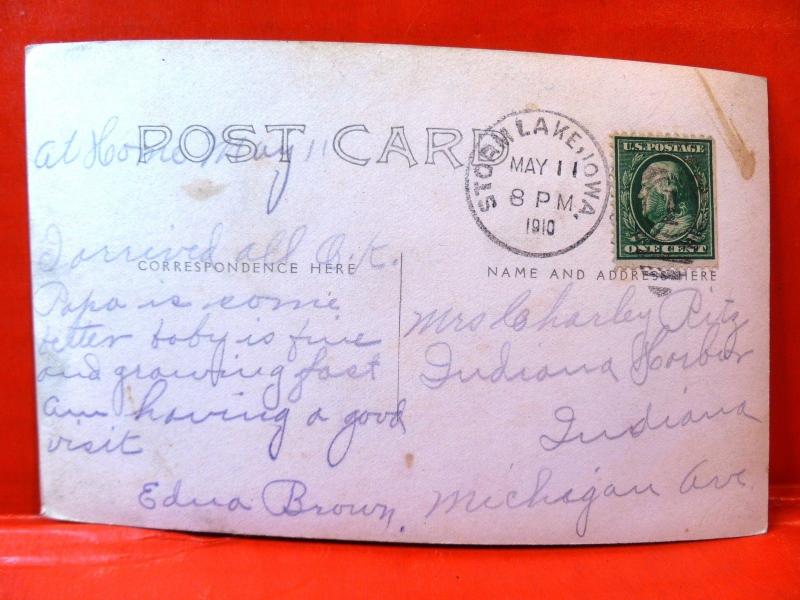 POST CARD
At Home May 11
STORM LAKE, IOWA.
MAY 11
8 PM
1910
U.S. POSTAGE
ONE CENT
I arrived all O.K.
CORRESPONDENCE HERE
NAME AND ADDRESS HERE
Papa is some
better baby is fine
and growing fast
am having a good
visit
Edna Brown.
Mrs Charley Ritz
Indiana Harbor
Indiana
Michigan Ave.